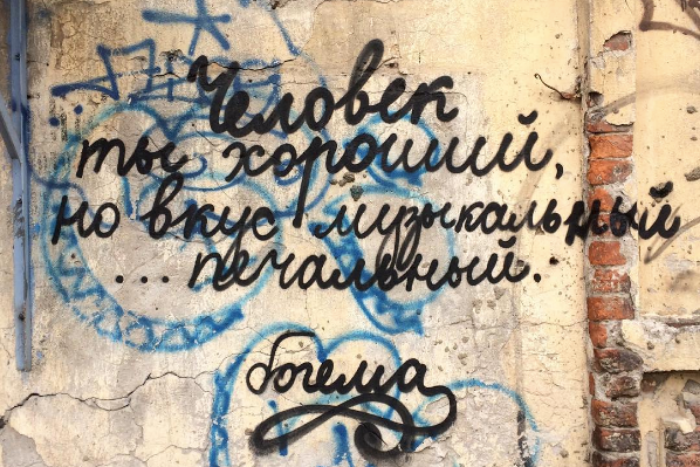 Человек
ты хороший,
но вкус музыкальный
... печальный.
богема